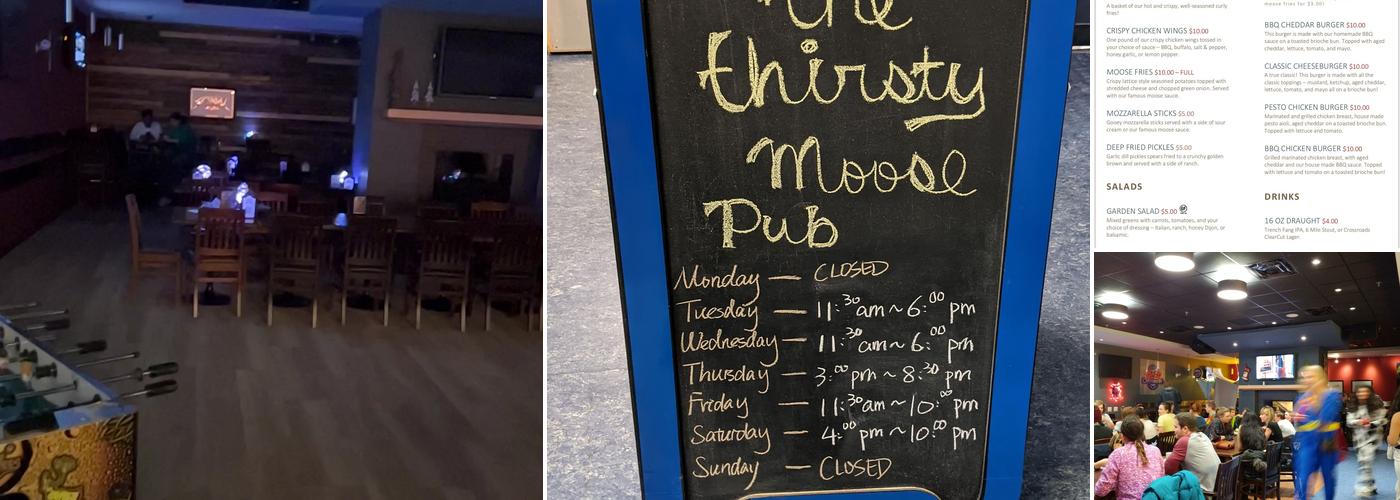 the
thirsty
Moose
Pub
Monday — CLOSED
Tuesday — 11:30am ~ 6:00 pm
Wednesday — 11:30am ~ 6:00 pm
Thursday — 3:00pm ~ 8:30 pm
Friday — 11:30am ~ 10:00 pm
Saturday — 4:00pm ~ 10:00 pm
Sunday — CLOSED
A basket of our hot and crispy, well-seasoned curly
fries!
CRISPY CHICKEN WINGS $10.00
One pound of our crispy chicken wings tossed in
your choice of sauce – BBQ, buffalo, salt & pepper,
honey garlic, or lemon pepper.
MOOSE FRIES $10.00 – FULL
Crispy lattice style seasoned potatoes topped with
shredded cheese and chopped green onion. Served
with our famous moose sauce.
MOZZARELLA STICKS $5.00
Gooey mozzarella sticks served with a side of sour
cream or our famous moose sauce.
DEEP FRIED PICKLES $5.00
Garlic dill pickles spears fried to a crunchy golden
brown and served with a side of ranch.
SALADS
GARDEN SALAD $5.00
Mixed greens with carrots, tomatoes, and your
choice of dressing – Italian, ranch, honey Dijon, or
balsamic.
moose fries for $3.00!
BBQ CHEDDAR BURGER $10.00
This burger is made with our homemade BBQ
sauce on a toasted brioche bun. Topped with aged
cheddar, lettuce, tomato, and mayo.
CLASSIC CHEESEBURGER $10.00
A true classic! This burger is made with all the
classic toppings – mustard, ketchup, aged cheddar,
lettuce, tomato, and mayo all on a brioche bun!
PESTO CHICKEN BURGER $10.00
Marinated and grilled chicken breast, house made
pesto aioli, aged cheddar on a toasted brioche bun.
Topped with lettuce and tomato.
BBQ CHICKEN BURGER $10.00
Grilled marinated chicken breast, with aged
cheddar and our house made BBQ sauce. Topped
with lettuce and tomato on a toasted brioche bun!
DRINKS
16 OZ DRAUGHT $4.00
Trench Fang IPA, 6 Mile Stout, or Crossroads
ClearCut Lager.